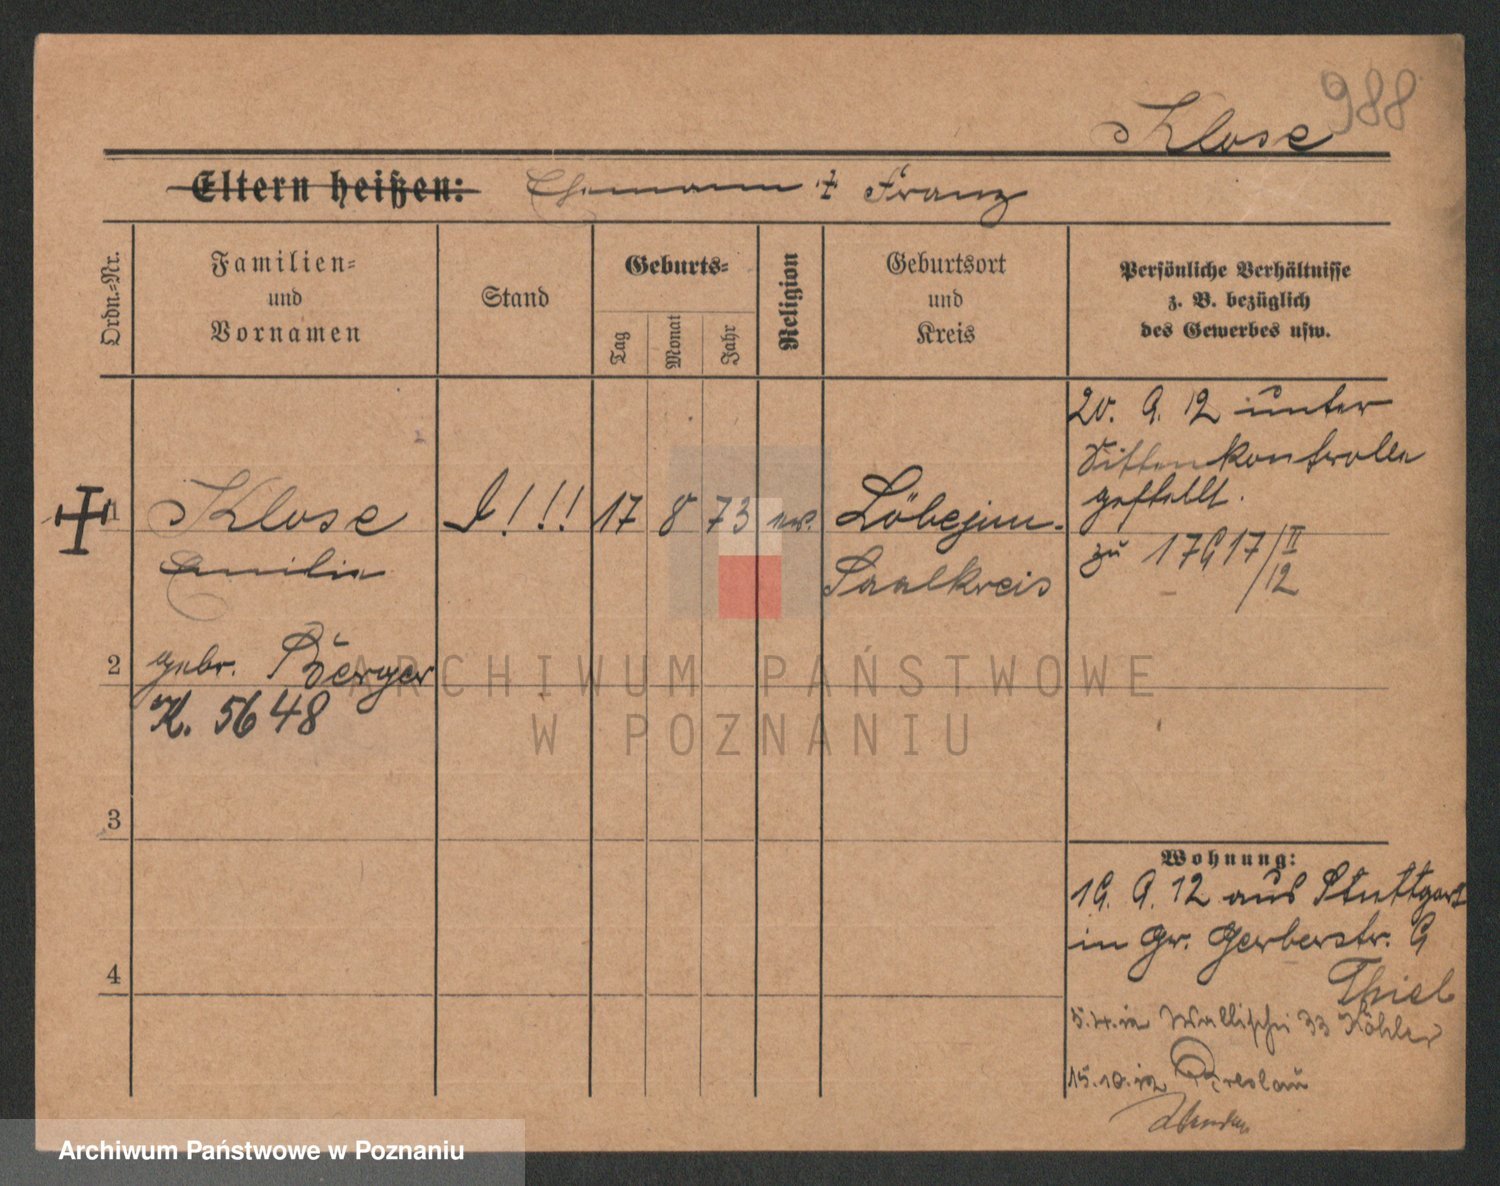 988
Klose
Eltern heißen: Ehemann † Franz
Ordn.=Nr.
Familien=
und
Vornamen
Stand
Geburts=
Tag
Monat
Jahr
Religion
Geburtsort
und
Kreis
Persönliche Verhältnisse
z. B. bezüglich
des Gewerbes usw.
20. 9. 12 unter
Sittenkontrolle
gestellt.
zu 17917/II
12
1
Klose
Emilie
!!!
17
8
73
Löbejün
Saalkreis
2
gebr. Berger
K. 5648
3
4
Wohnung:
19. 9. 12 aus Stuttgart
in Gr. Gerberstr. 9
Thiel
in Wallischei 33 Köhler
15.10. in Breslau
ARCHIWUM PAŃSTWOWE
W POZNANIU
Archiwum Państwowe w Poznaniu